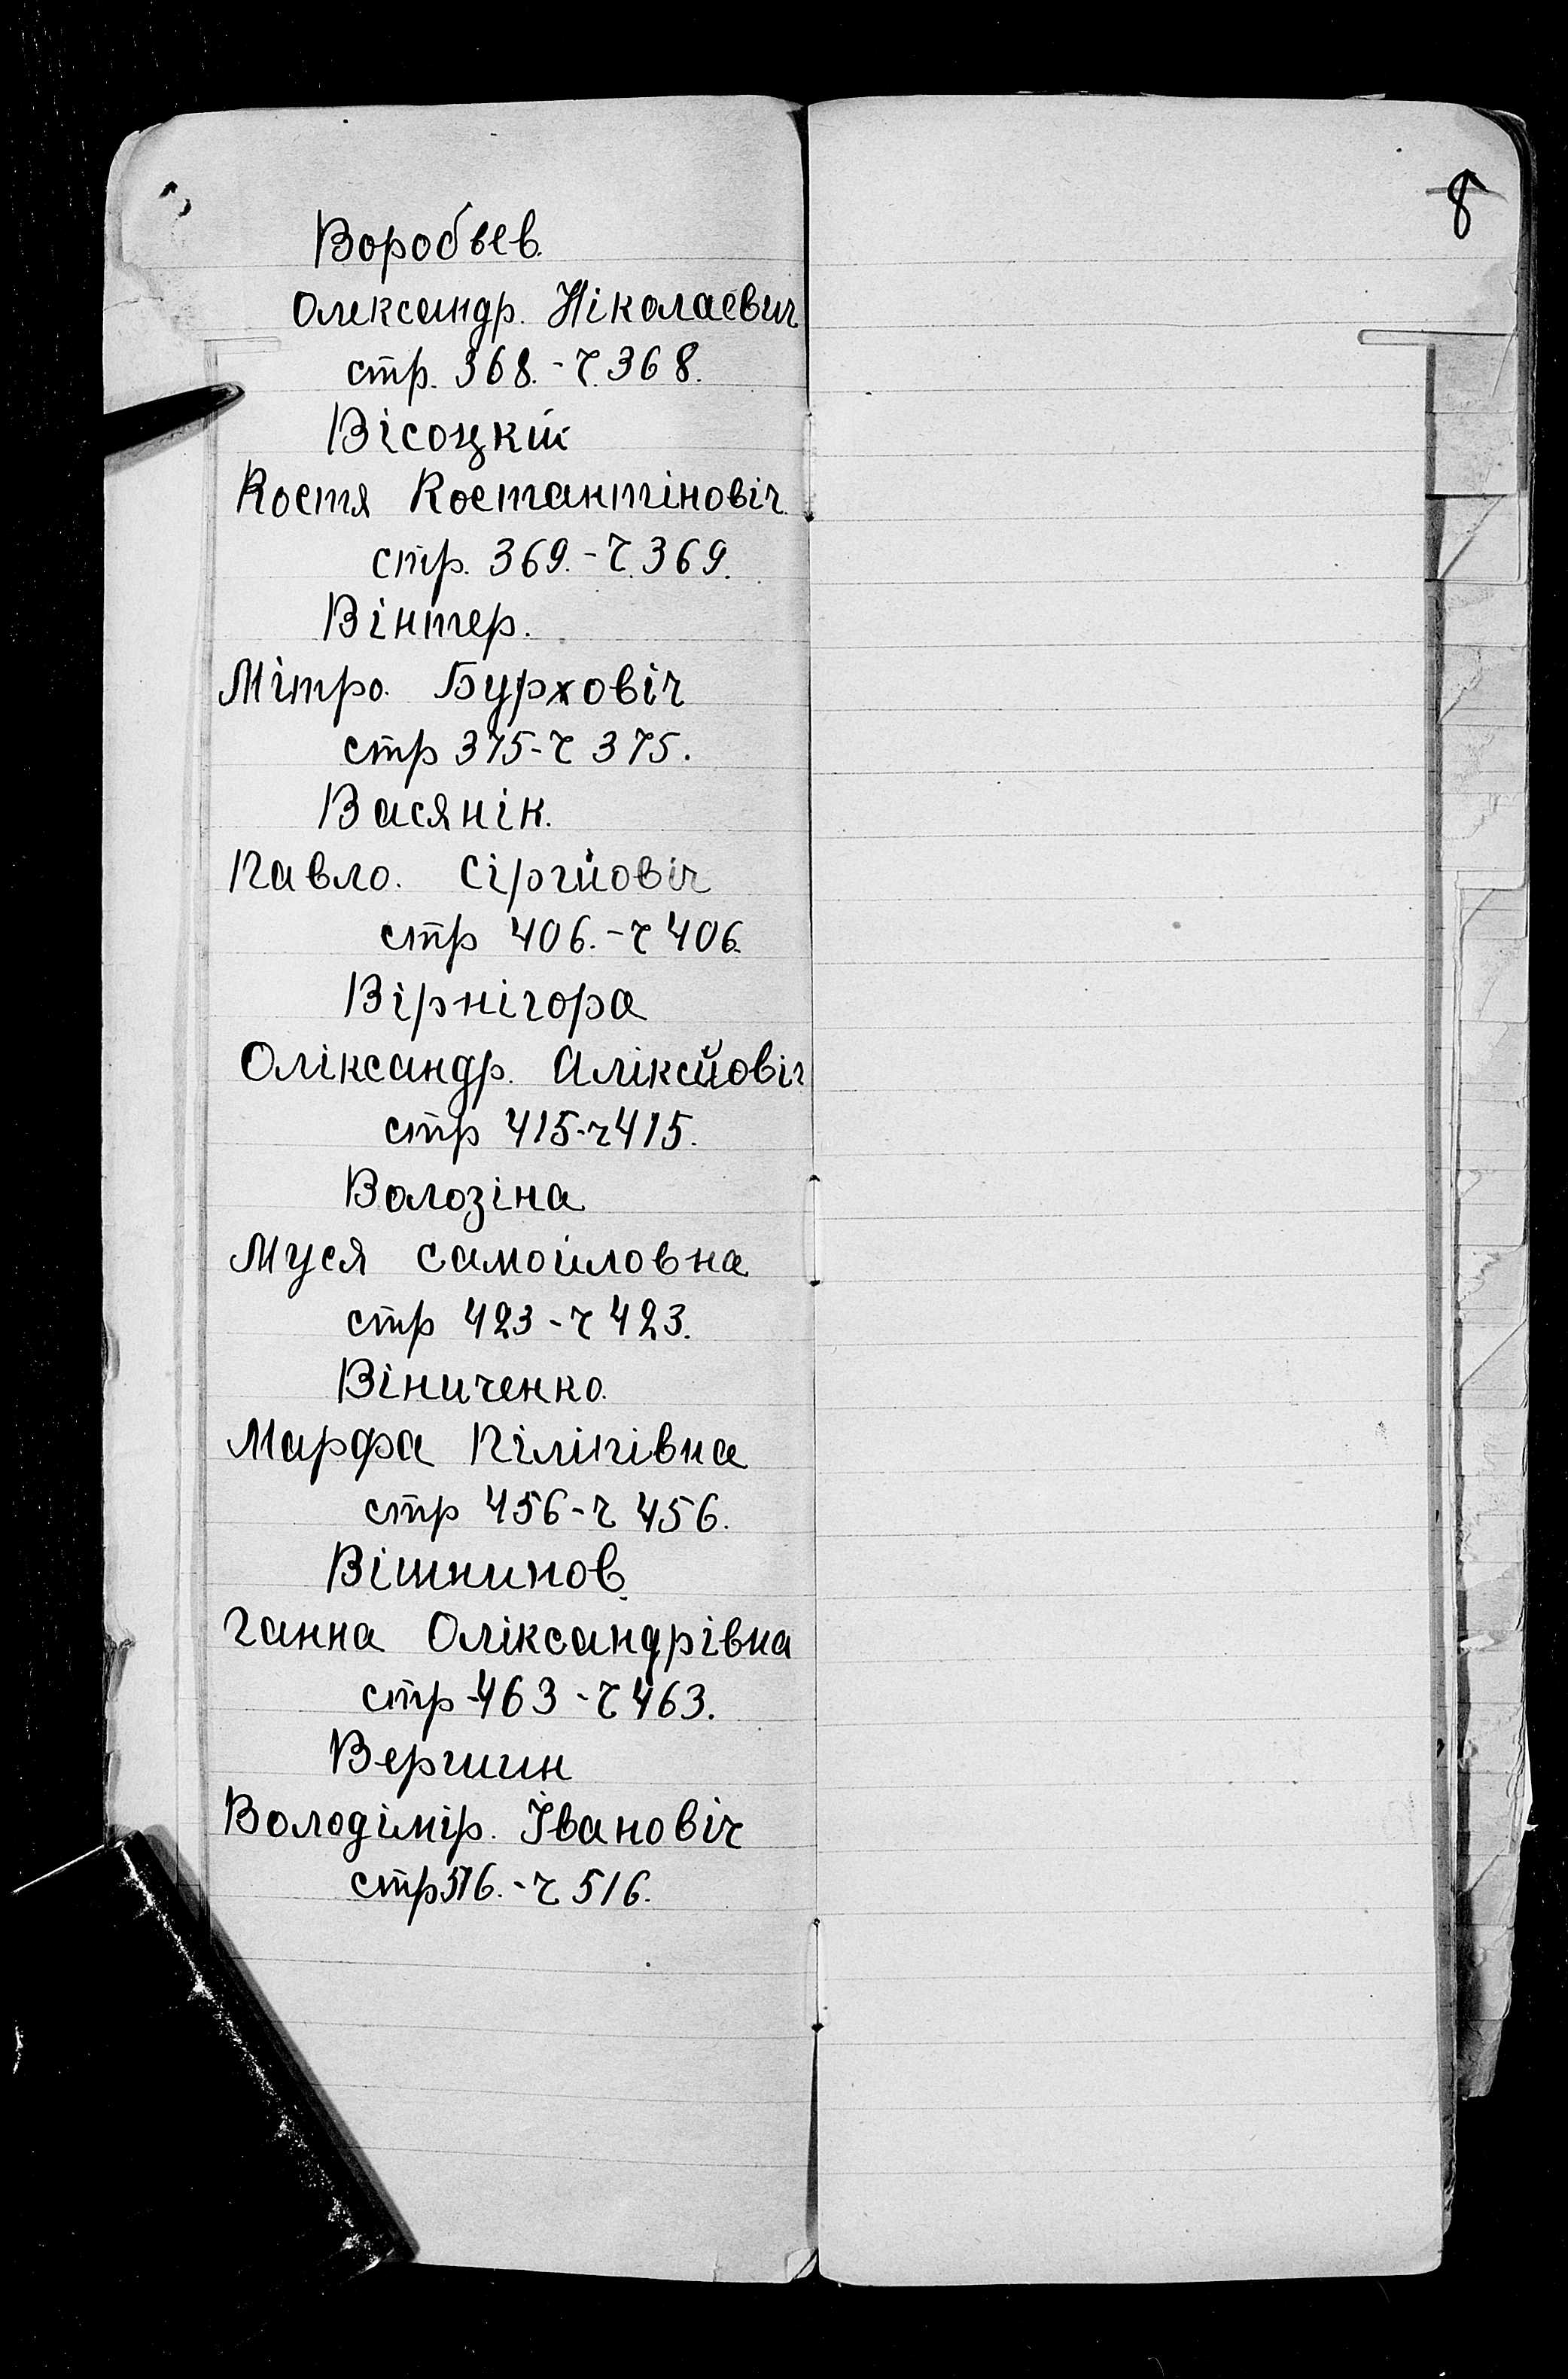 8
Воробьев.
Олександр. Ніколаевич
стр. 368. - ч. 368.
Вісоцкій
Костя Костантіновіч.
стр. 369. - ч. 369.
Вінтер.
Мітро. Бурховіч
стр 375 - ч 375.
Васянік.
Павло. Сіргйовіч
стр 406. - ч 406.
Вірнігора
Оліксандр. Аліксйовіч
стр 415 - ч 415.
Волозіна
Муся Самойловна
стр 423 - ч 423.
Віниченко.
Марфа Піліпівна
стр 456 - ч 456.
Ганна Оліксандрівна
стр 463 - ч 463.
Вершин
Володімір. Івановіч
стр 516. - ч 516.